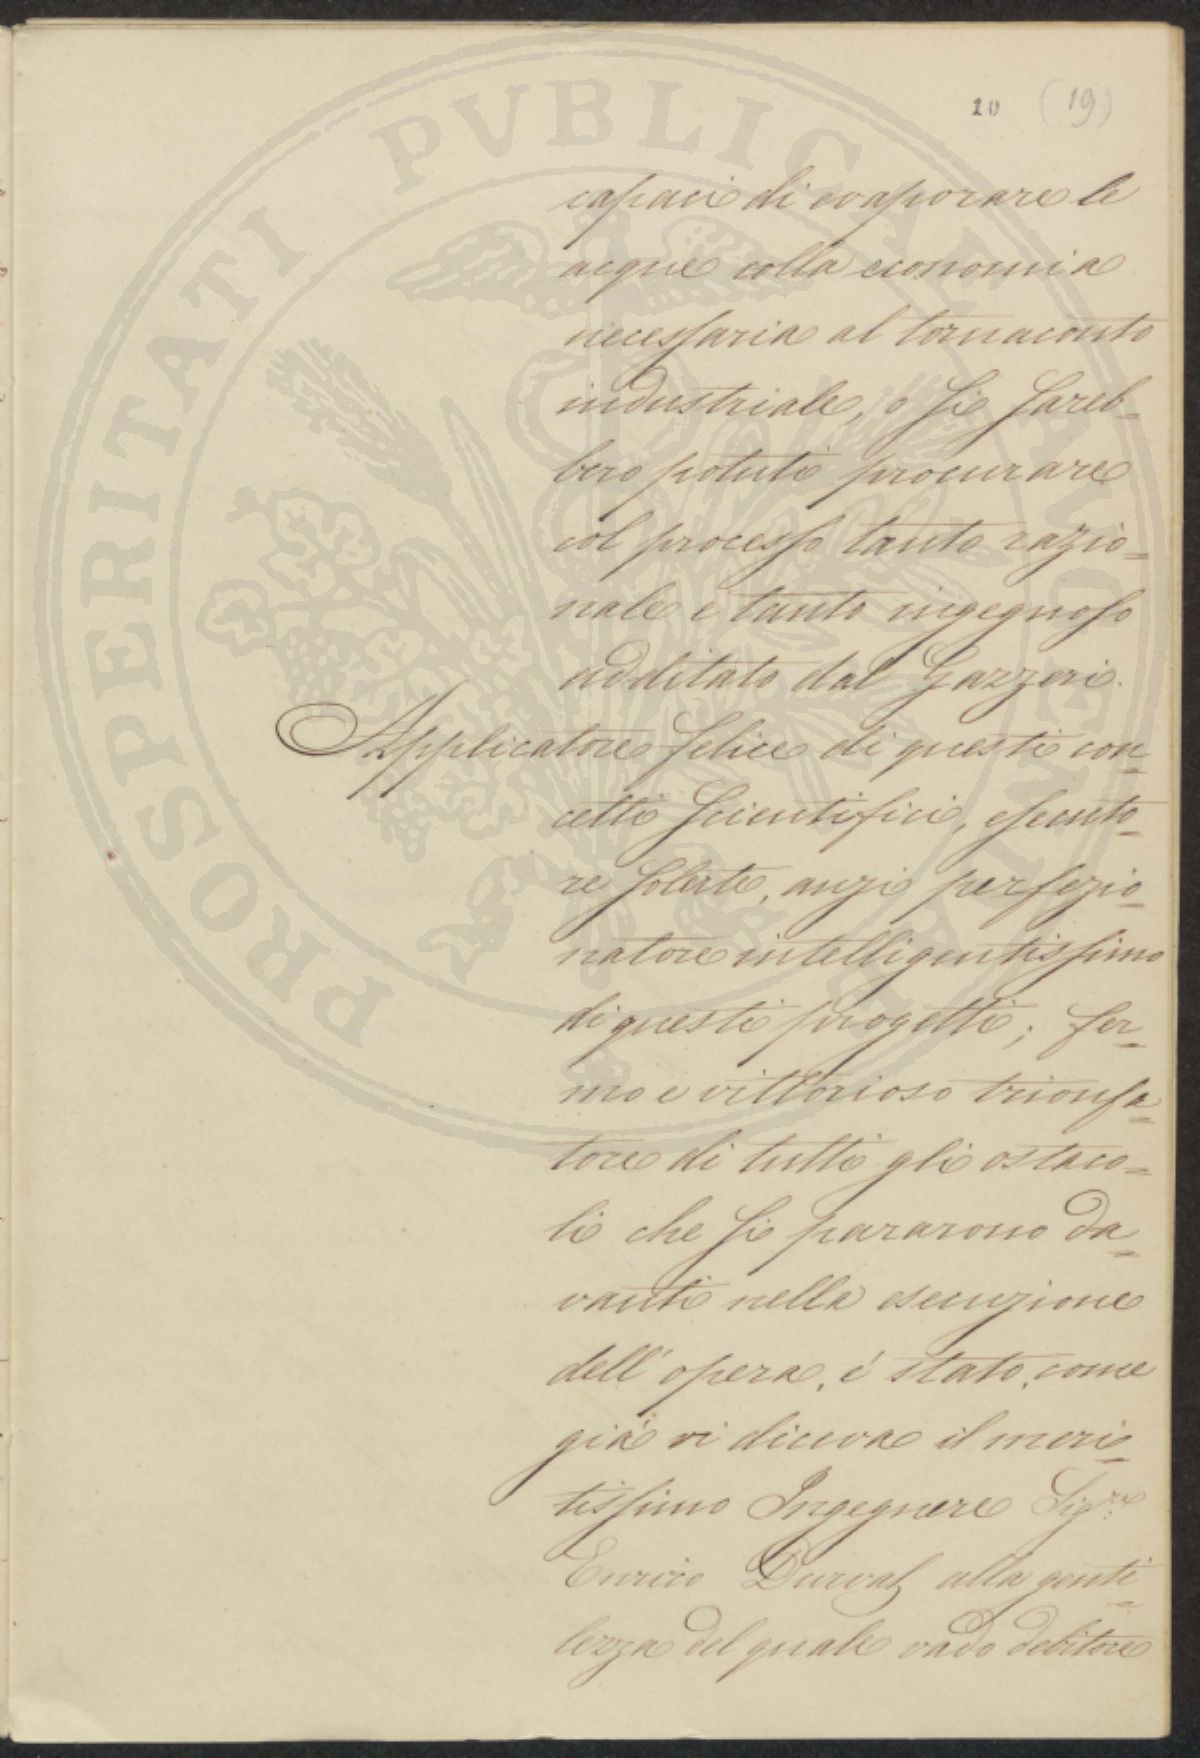 10 (19)
PROSPERITATI PVBLICAE
capaci di evaporare le
acque colla economia
necessaria al tornaconto
industriale, o si sareb=
bero potuti procurare
col processo tanto razio=
nale e tanto ingegnoso
additato dal Gazzeri.
Applicatore felice di questi con=
cetti scientifici, esecuto=
re solerte, anzi perfezio=
natore intelligentissimo
di questi progetti; fer=
mo e vittorioso trionfa=
tore di tutti gli ostaco=
li che si pararono da=
vanti nella esecuzione
dell' opera, é stato, come
già vi diceva il meri=
tissimo Ingegnere Sigre
Enrico Durval alla genti=
lezza del quale vado debitore